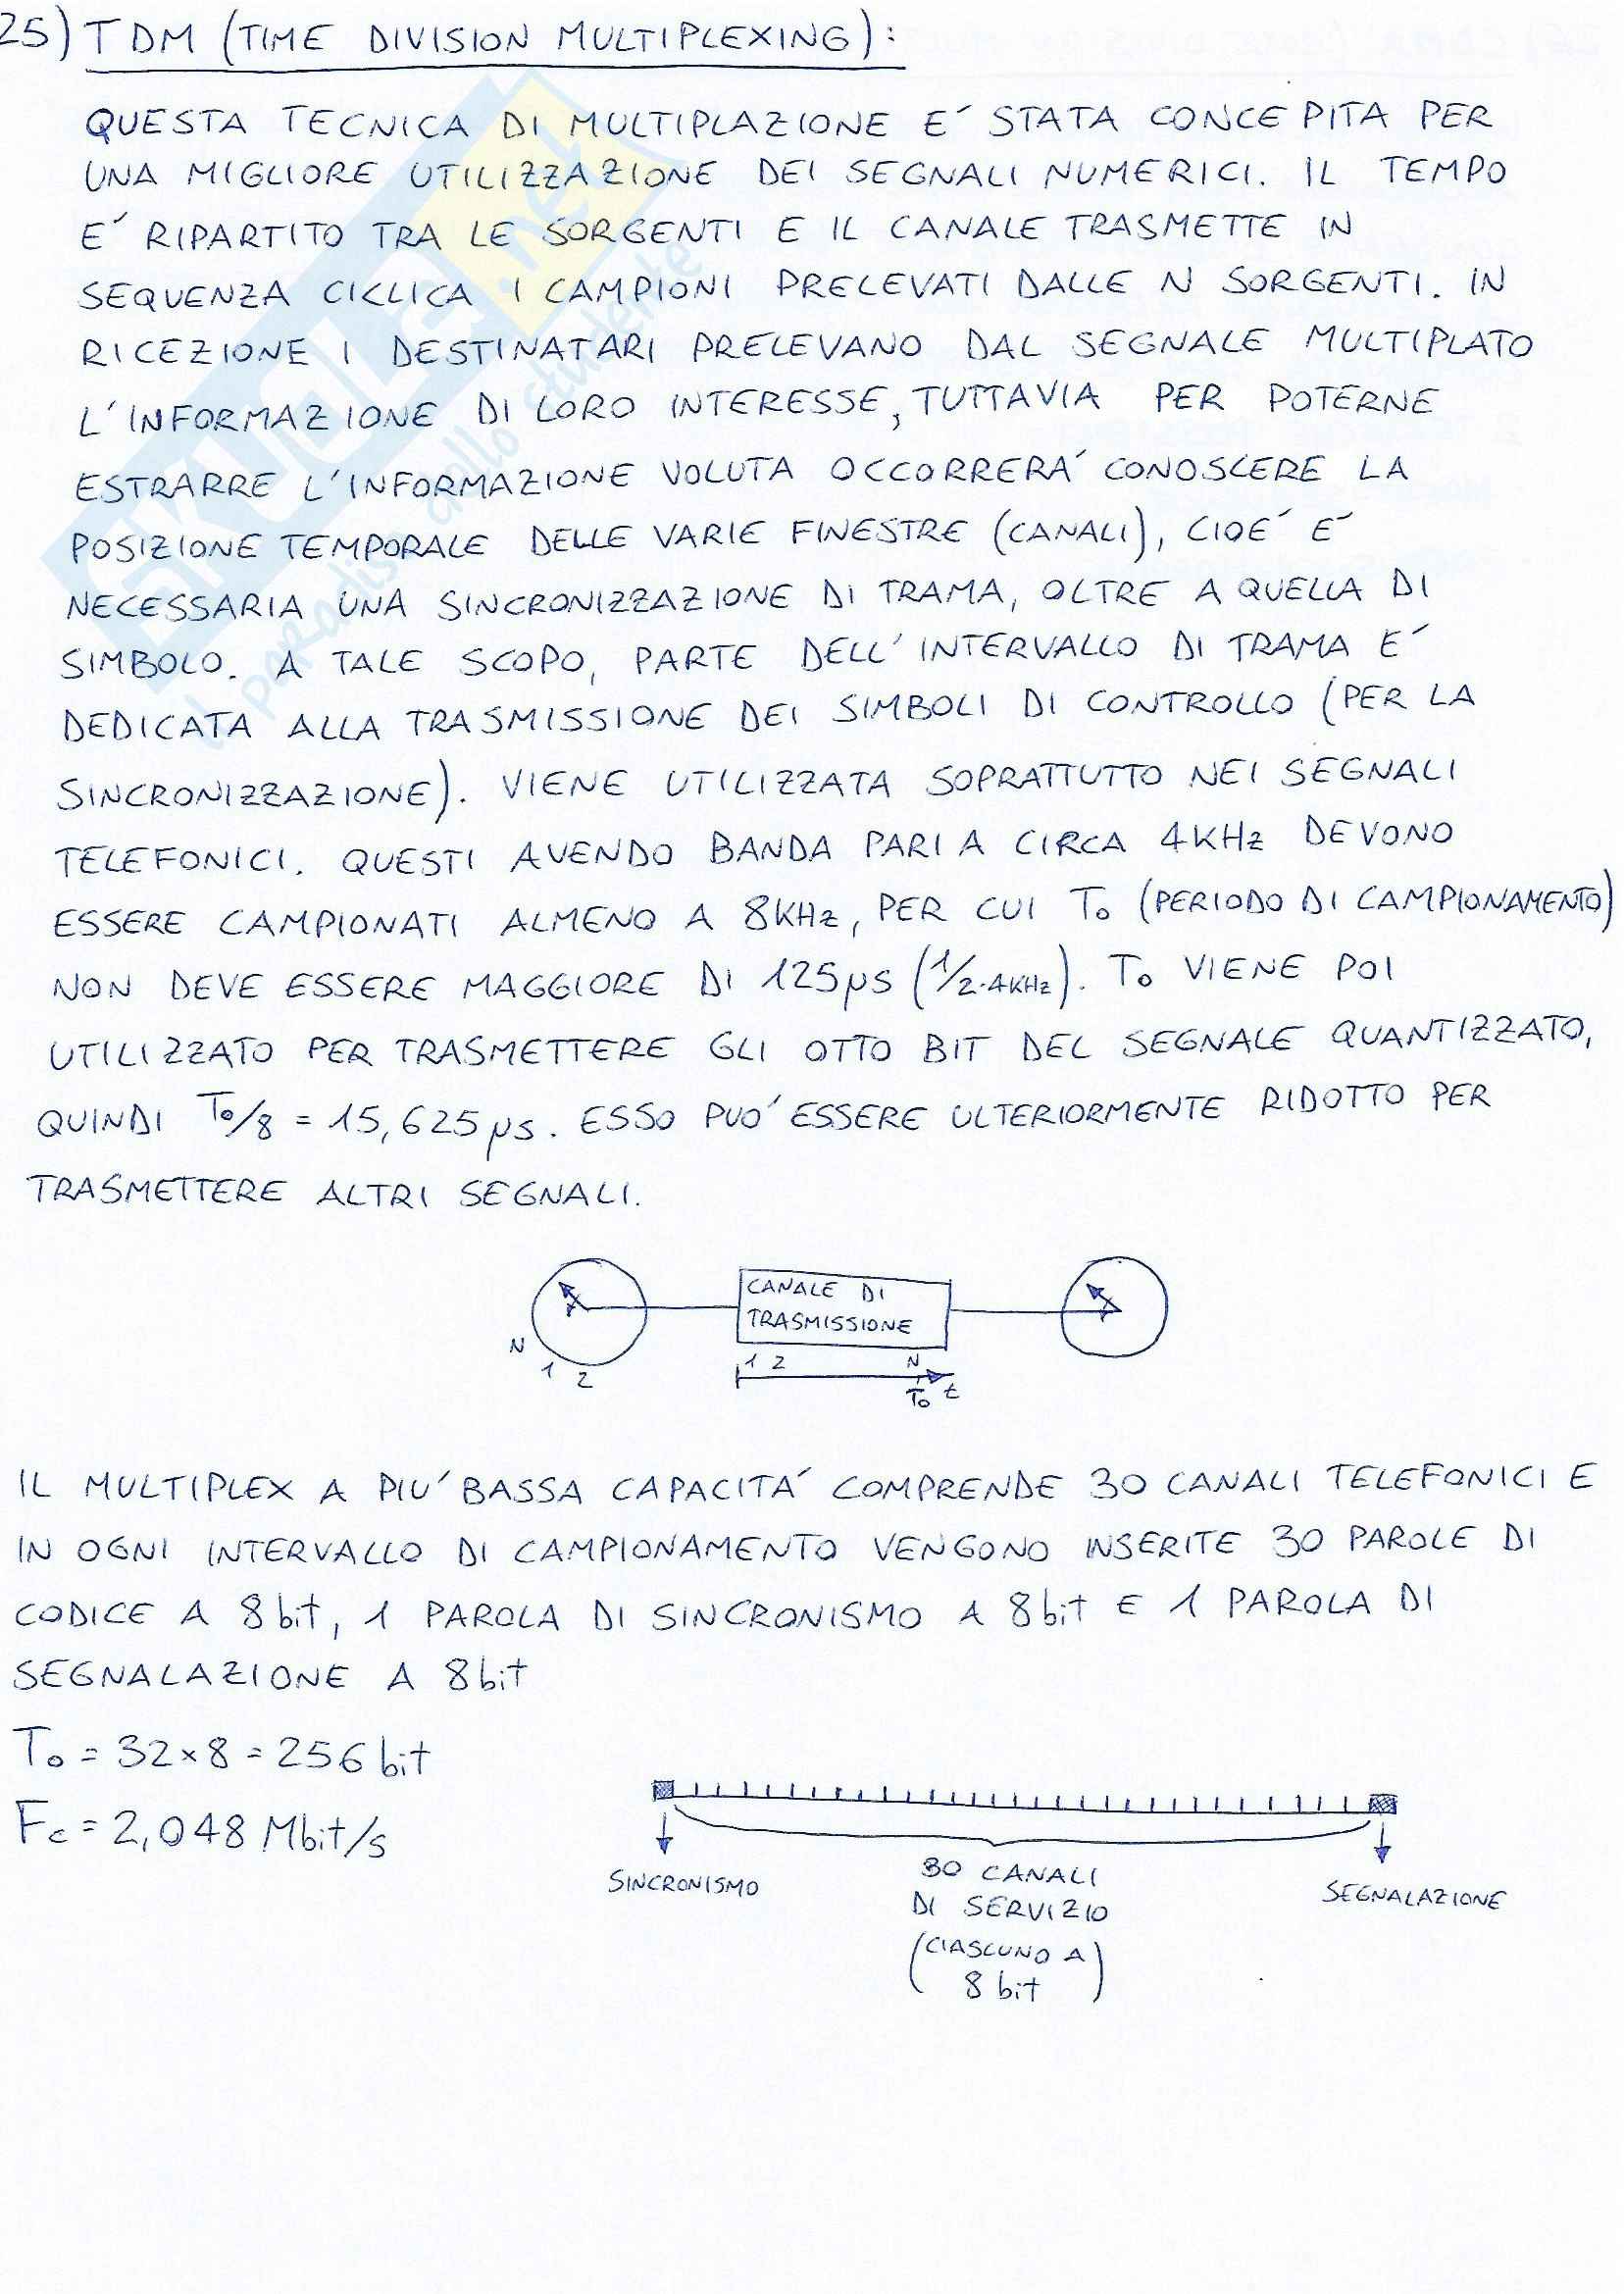 25) TDM (TIME DIVISION MULTIPLEXING):
QUESTA TECNICA DI MULTIPLAZIONE E' STATA CONCEPITA PER
UNA MIGLIORE UTILIZZAZIONE DEI SEGNALI NUMERICI. IL TEMPO
E' RIPARTITO TRA LE SORGENTI E IL CANALE TRASMETTE IN
SEQUENZA CICLICA I CAMPIONI PRELEVATI DALLE N SORGENTI. IN
RICEZIONE I DESTINATARI PRELEVANO DAL SEGNALE MULTIPLATO
L'INFORMAZIONE DI LORO INTERESSE, TUTTAVIA PER POTERNE
ESTRARRE L'INFORMAZIONE VOLUTA OCCORRERA' CONOSCERE LA
POSIZIONE TEMPORALE DELLE VARIE FINESTRE (CANALI), CIOE' E'
NECESSARIA UNA SINCRONIZZAZIONE DI TRAMA, OLTRE A QUELLA DI
SIMBOLO. A TALE SCOPO, PARTE DELL'INTERVALLO DI TRAMA E'
DEDICATA ALLA TRASMISSIONE DEI SIMBOLI DI CONTROLLO (PER LA
SINCRONIZZAZIONE). VIENE UTILIZZATA SOPRATTUTTO NEI SEGNALI
TELEFONICI. QUESTI AVENDO BANDA PARI A CIRCA 4KHz DEVONO
ESSERE CAMPIONATI ALMENO A 8KHz, PER CUI T₀ (PERIODO DI CAMPIONAMENTO)
NON DEVE ESSERE MAGGIORE DI 125μs (1/2·4KHz). T₀ VIENE POI
UTILIZZATO PER TRASMETTERE GLI OTTO BIT DEL SEGNALE QUANTIZZATO,
QUINDI T₀/8 = 15,625μs. ESSO PUO' ESSERE ULTERIORMENTE RIDOTTO PER
TRASMETTERE ALTRI SEGNALI.
CANALE DI
TRASMISSIONE
N 1 2
1 2 N
T₀ t
IL MULTIPLEX A PIU' BASSA CAPACITA' COMPRENDE 30 CANALI TELEFONICI E
IN OGNI INTERVALLO DI CAMPIONAMENTO VENGONO INSERITE 30 PAROLE DI
CODICE A 8bit, 1 PAROLA DI SINCRONISMO A 8bit E 1 PAROLA DI
SEGNALAZIONE A 8bit
T₀ = 32×8 = 256 bit
Fc = 2,048 Mbit/s
SINCRONISMO
30 CANALI
DI SERVIZIO
(CIASCUNO A
8 bit)
SEGNALAZIONE
SKUOLA.net
il paradiso dello studente